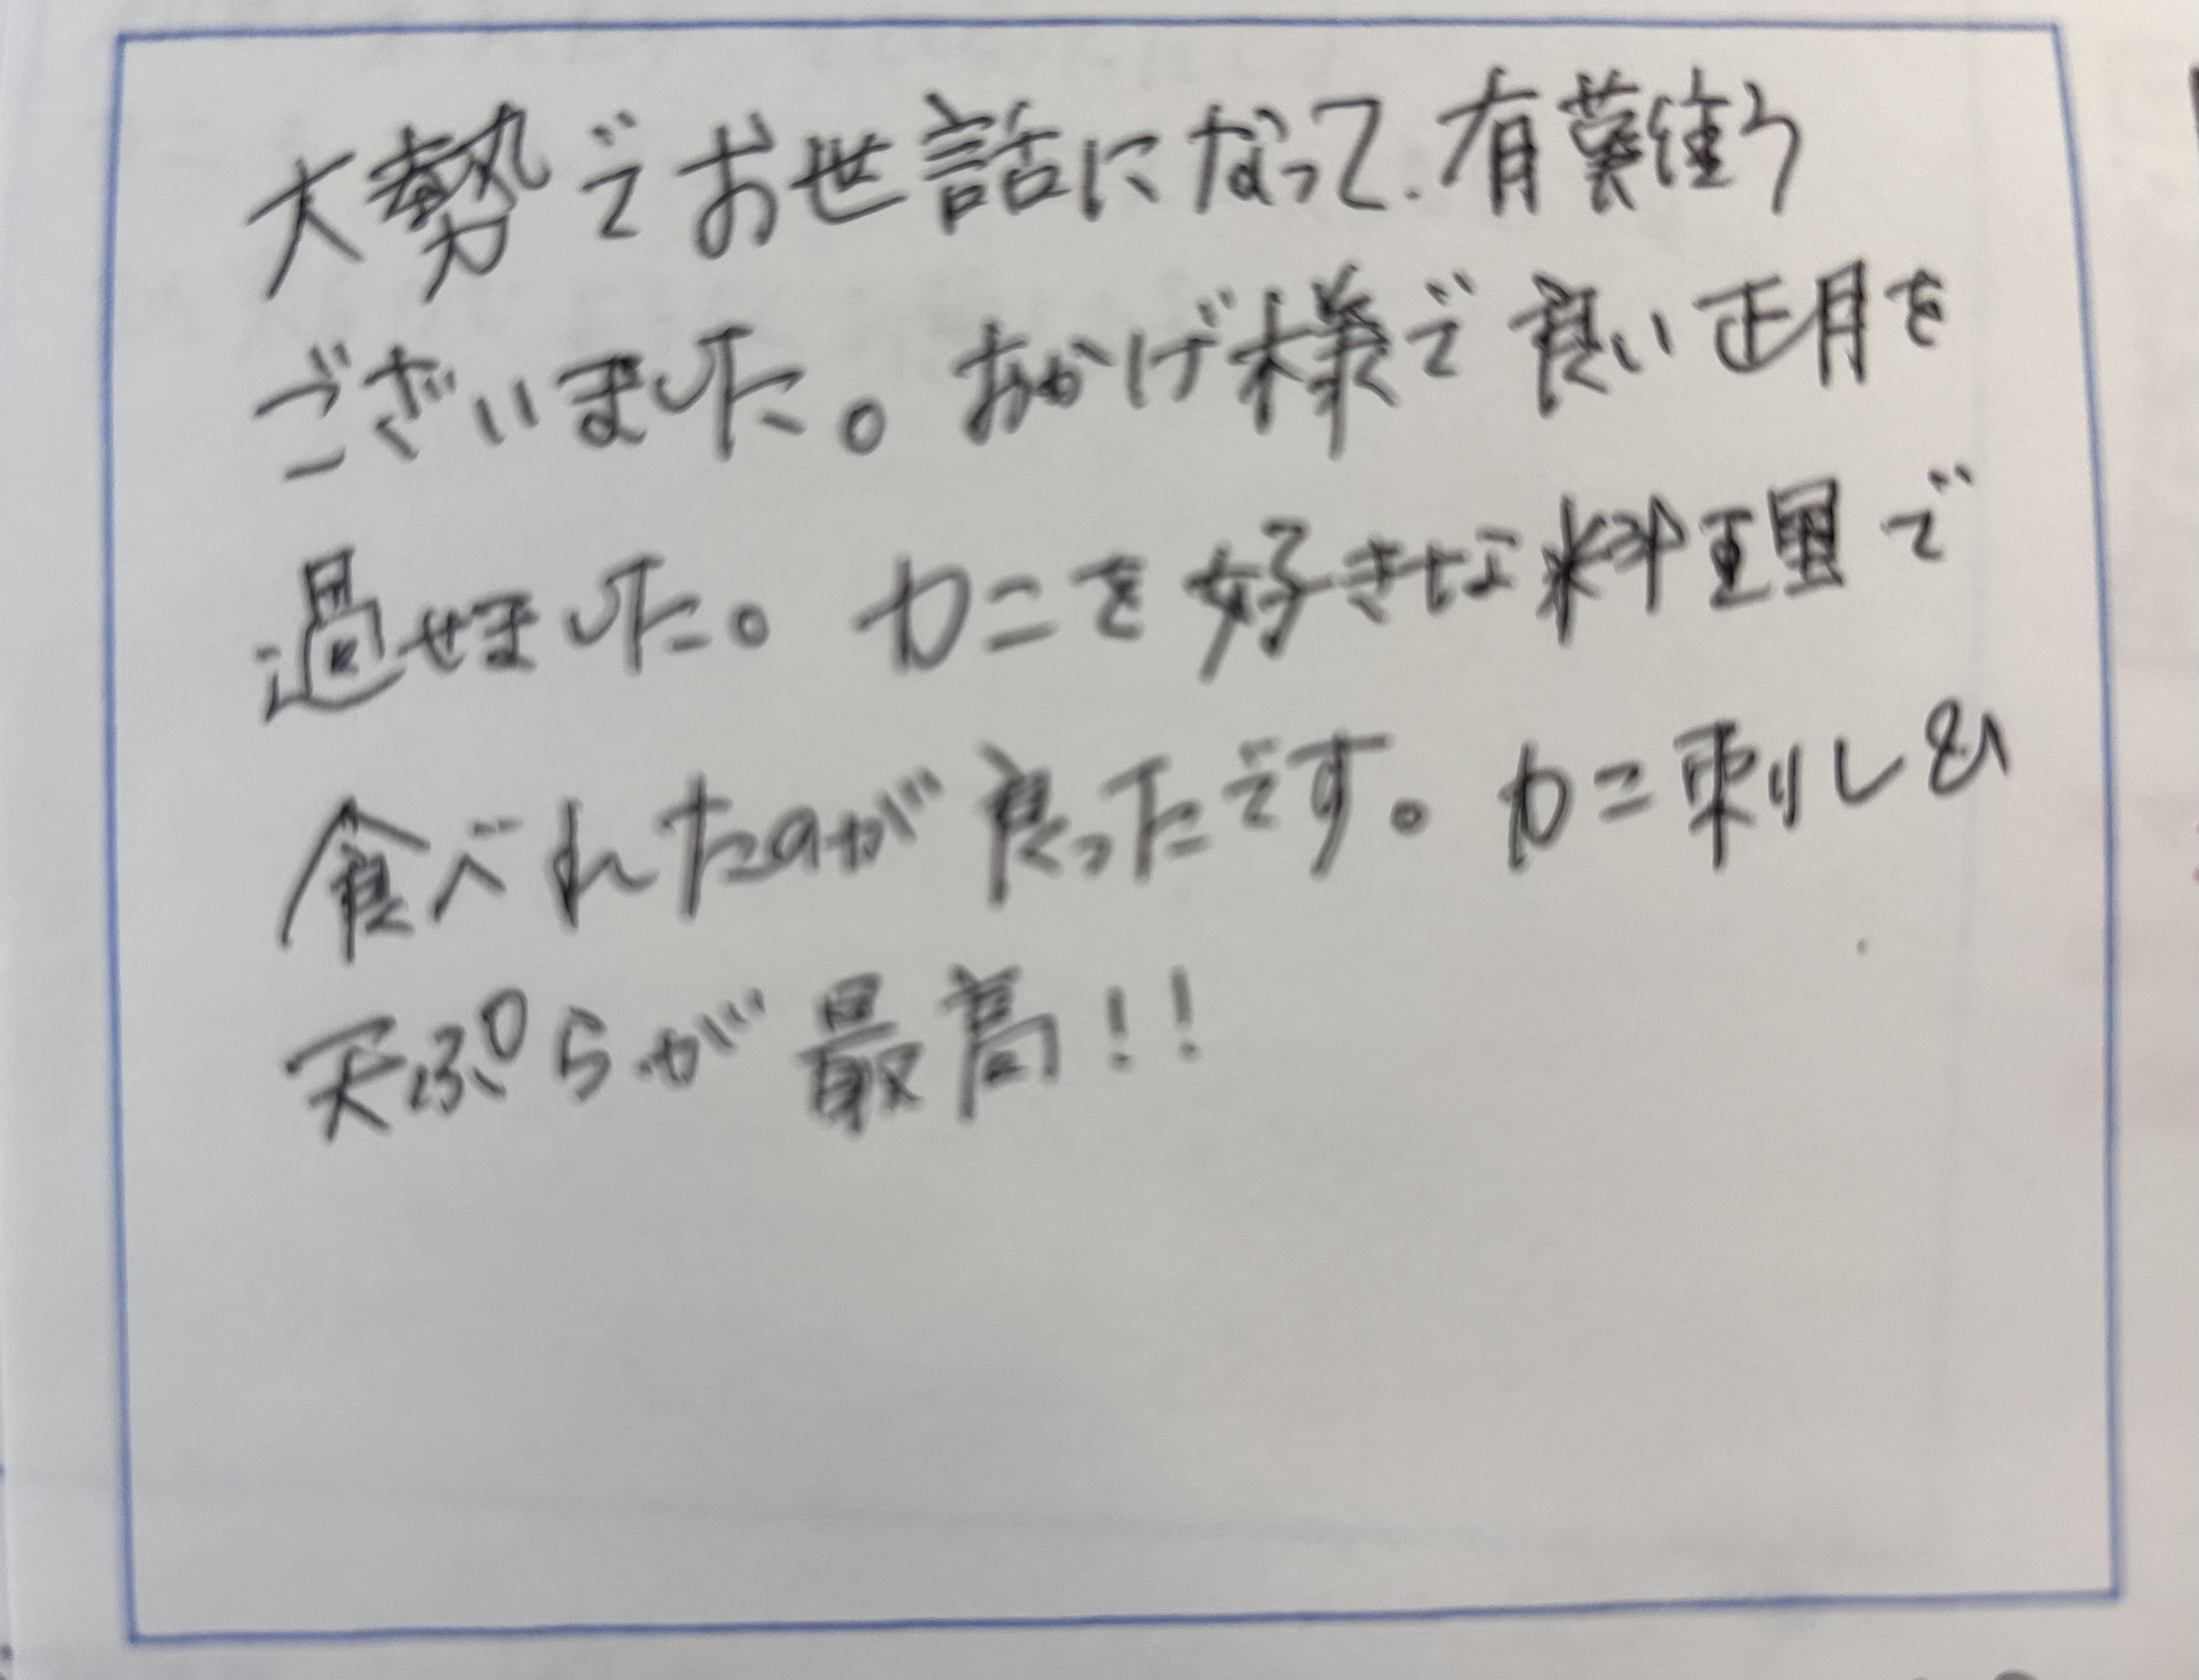 大勢でお世話になって、有難う
ございました。おかげ様で良い正月を
過せました。カニを好きな料理で
食べれたのが良ったです。カニ刺しと
天ぷらが最高!!